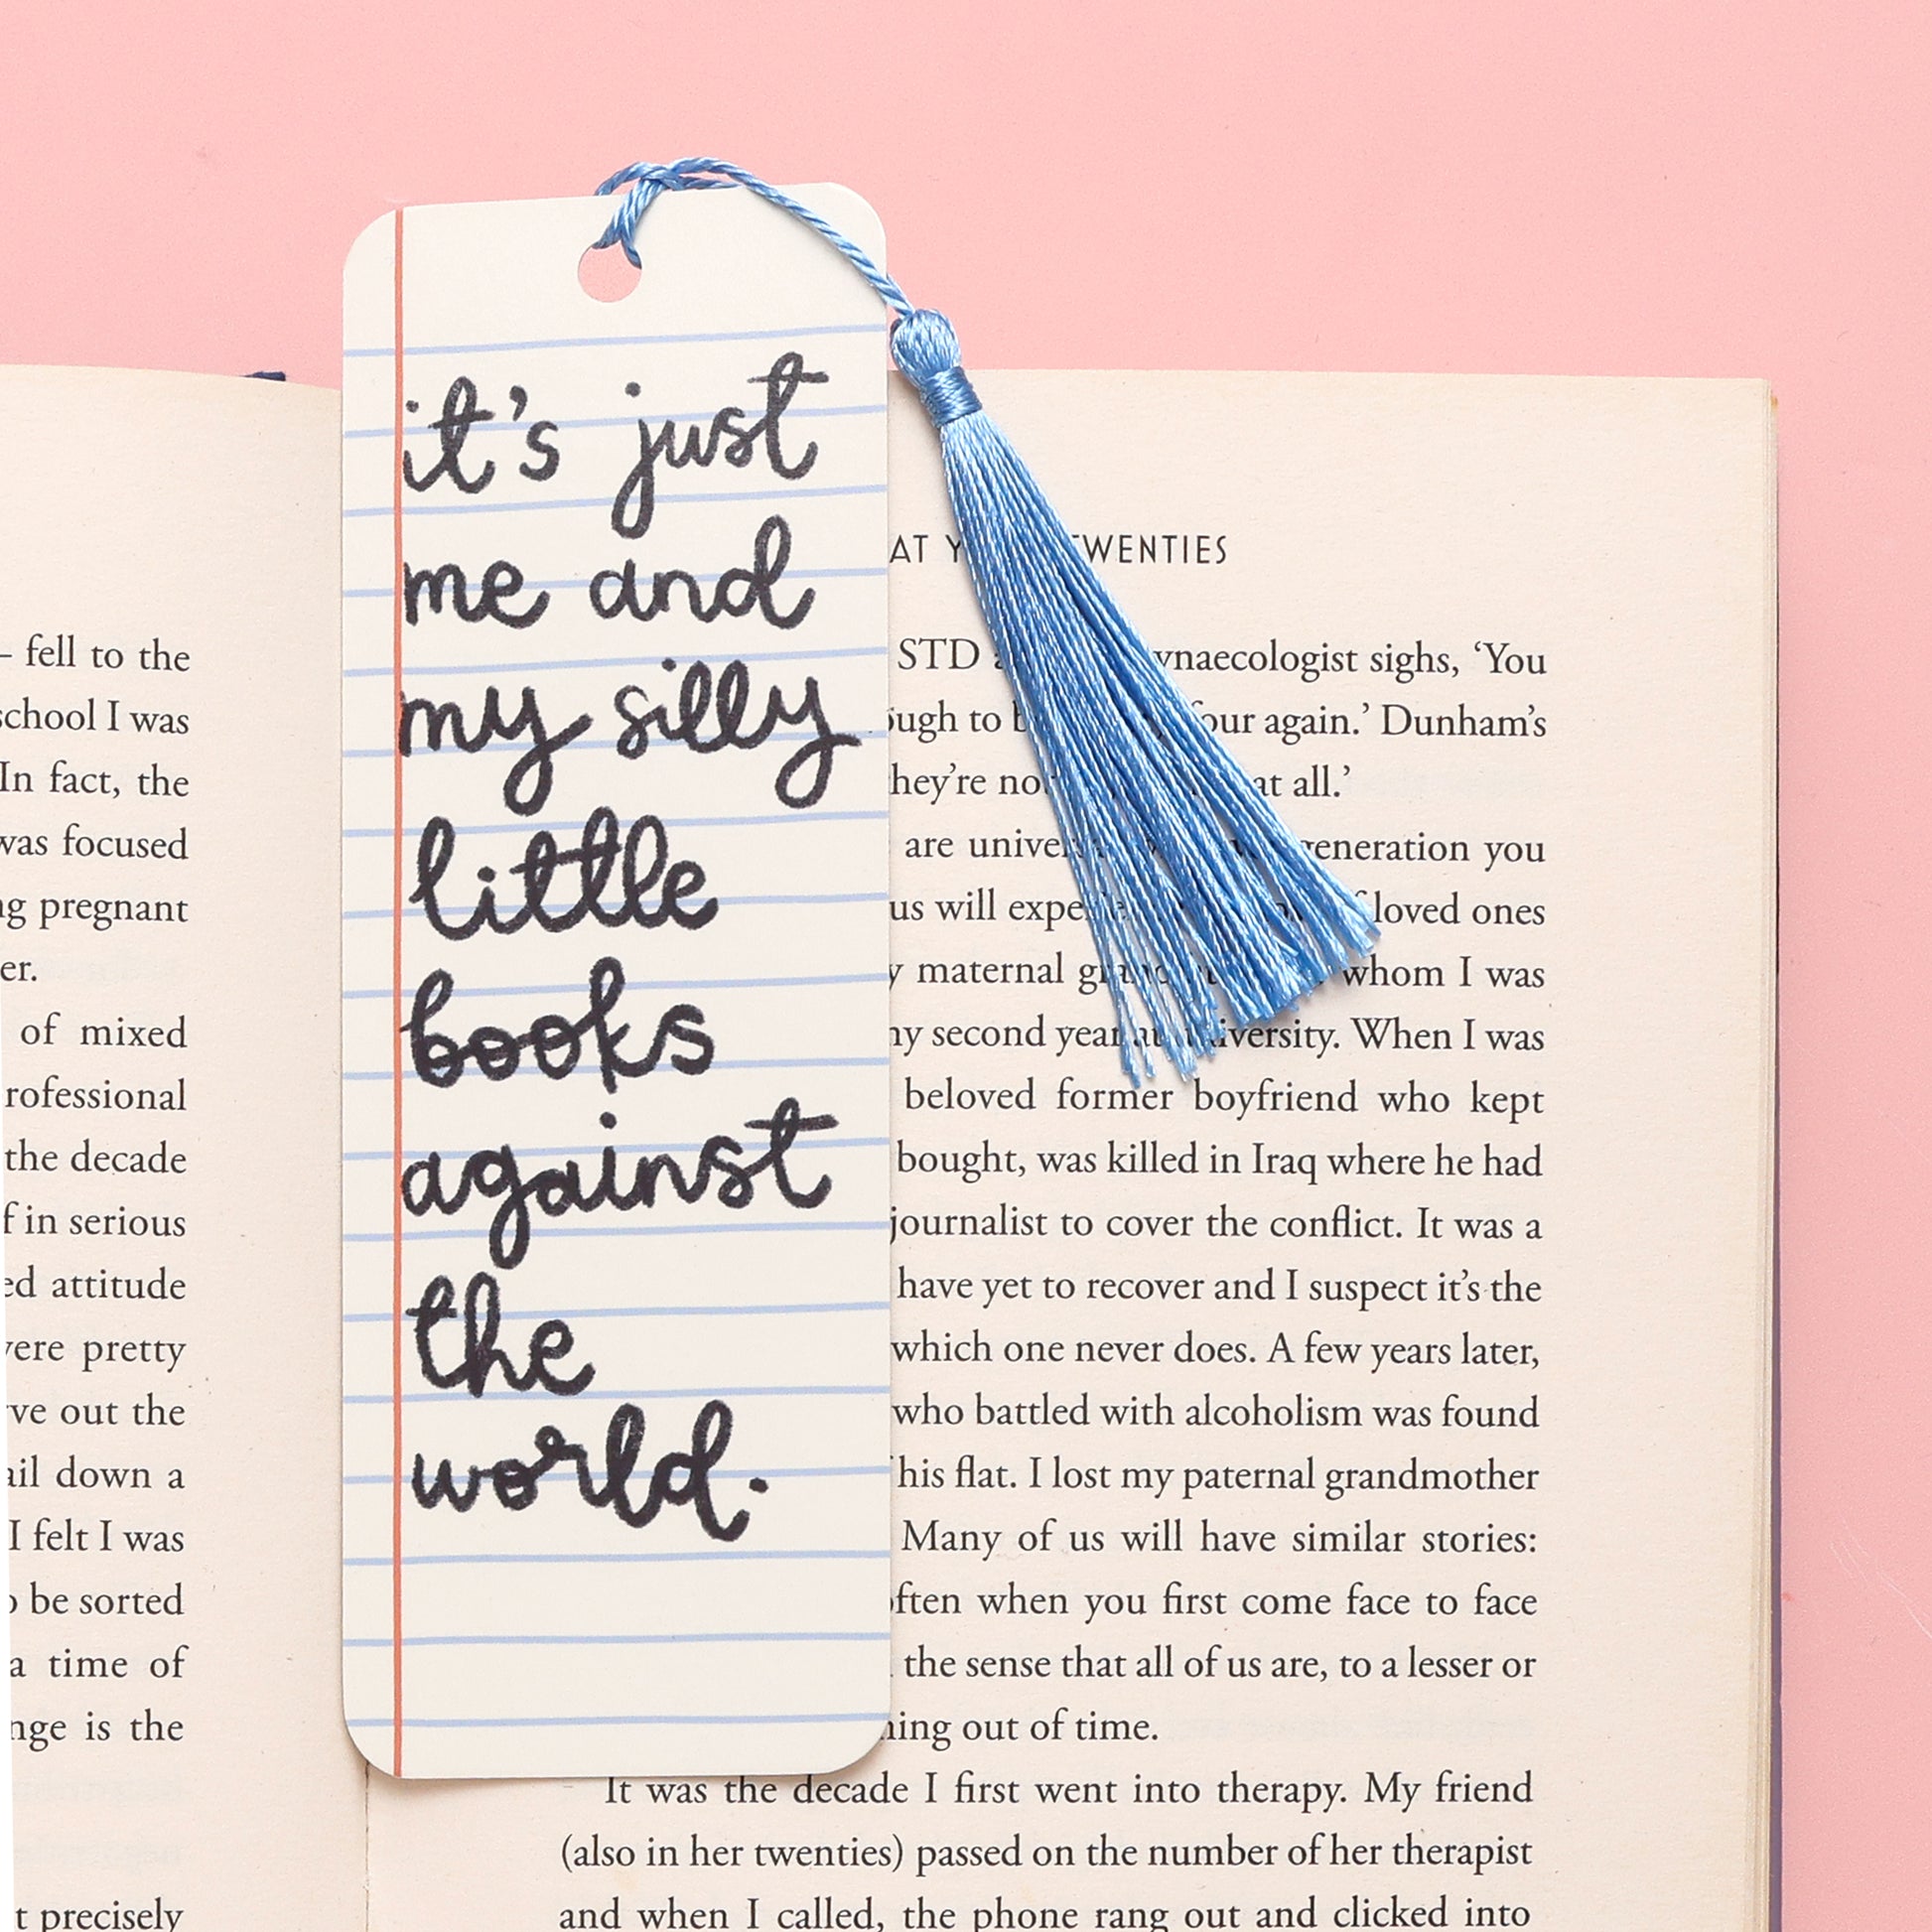 it's just
me and
my silly
little
books
against
the
world.
fell to the
school I was
In fact, the
was focused
pregnant
er.
of mixed
the decade
in serious
attitude
pretty
out the
down a
I felt I was
be sorted
a time of
is the
t precisely
AT TWENTIES
STD sighs, ‘You
to again.’ Dunham’s
they’re at all.’
are generation you
us will loved ones
maternal whom I was
second year university. When I was
beloved former boyfriend who kept
bought, was killed in Iraq where he had
journalist to cover the conflict. It was a
have yet to recover and I suspect it’s the
which one never does. A few years later,
who battled with alcoholism was found
his flat. I lost my paternal grandmother
Many of us will have similar stories:
often when you first come face to face
the sense that all of us are, to a lesser or
out of time.
It was the decade I first went into therapy. My friend
(also in her twenties) passed on the number of her therapist
and when I called, the phone rang out and clicked into